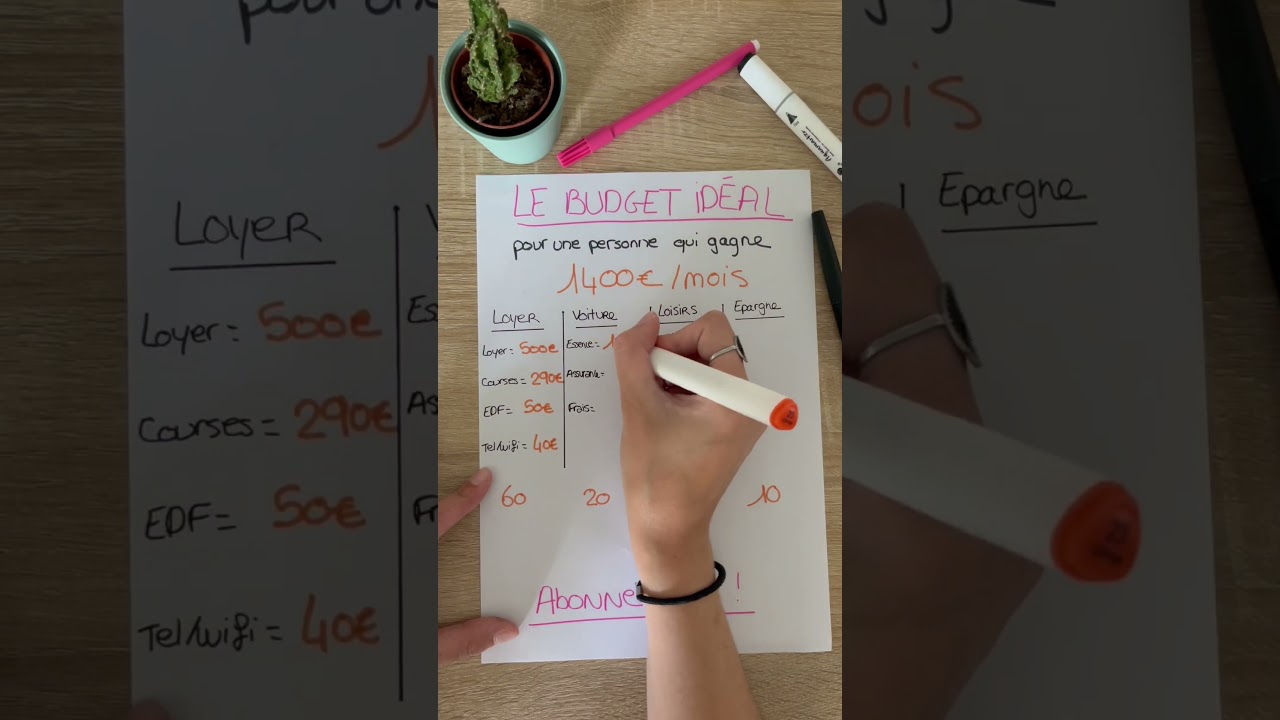 LE BUDGET IDÉAL
pour une personne qui gagne
1400€/mois
LOYER
Loyer = 500€
Courses = 290€
EDF = 50€
Tel/wifi = 40€
60
Voiture
Essence = 1
Assurance =
Frais =
20
Loisirs
Epargne
10
Abonne !